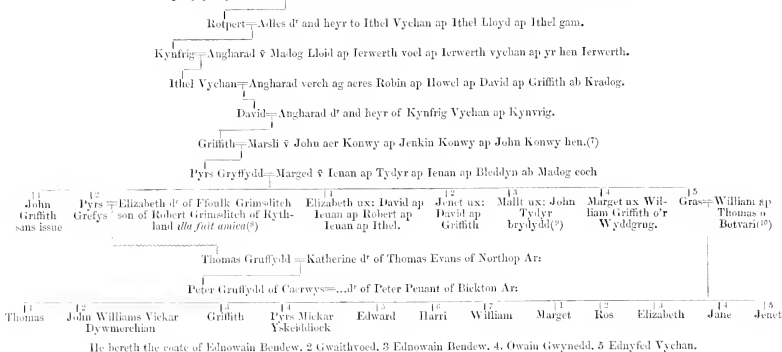 Rotpert=Adles dr and heyr to Ithel Vychan ap Ithel Lloyd ap Ithel gam.
Kynfrig=Angharad v̄ Madog Lloid ap Ierwerth voel ap Ierwerth vychan ap yr hen Ierwerth.
Ithel Vychan=Angharad verch ag aeres Robin ap Howel ap David ap Griffith ab Kradog.
David=Angharad dr and heyr of Kynfrig Vychan ap Kynvrig.
Griffith=Marsli v̄ John aer Konwy ap Jenkin Konwy ap John Konwy hen.(7)
Pyrs Gryffydd=Marged v̄ Ienan ap Tydyr ap Ienan ap Bleddyn ab Madog coch
1 2 1 2 3 4 5
John Griffith sans issue
Pyrs Grefys=Elizabeth dr of Ffoulk Grimsditch son of Robert Grimsditch of Rythland illa fuit amica(8)
Elizabeth ux: David ap Ieuan ap Robert ap Ieuan ap Ithel.
Jenet ux: David ap Griffith
Mallt ux: John Tydyr brydydd(9)
Marget ux William Griffith o'r Wyddgrug.
Gras=William ap Thomas o Botvari(10)
Thomas Gruffydd=Katherine dr of Thomas Evans of Northop Ar:
Peter Gruffydd of Caerwys=...dr of Peter Penant of Bickton Ar:
1 2 3 4 5 6 7 1 2 3 4 5
Thomas
John Williams Vickar Dywmerchian
Griffith
Pyrs Mickar Yskeiddiock
Edward
Harri
William
Marget
Ros
Elizabeth
Jane
Jenet
He bereth the coate of Ednowain Bendew, 2 Gwaithvoed, 3 Ednowain Bendew, 4, Owain Gwynedd, 5 Ednyfed Vychan.